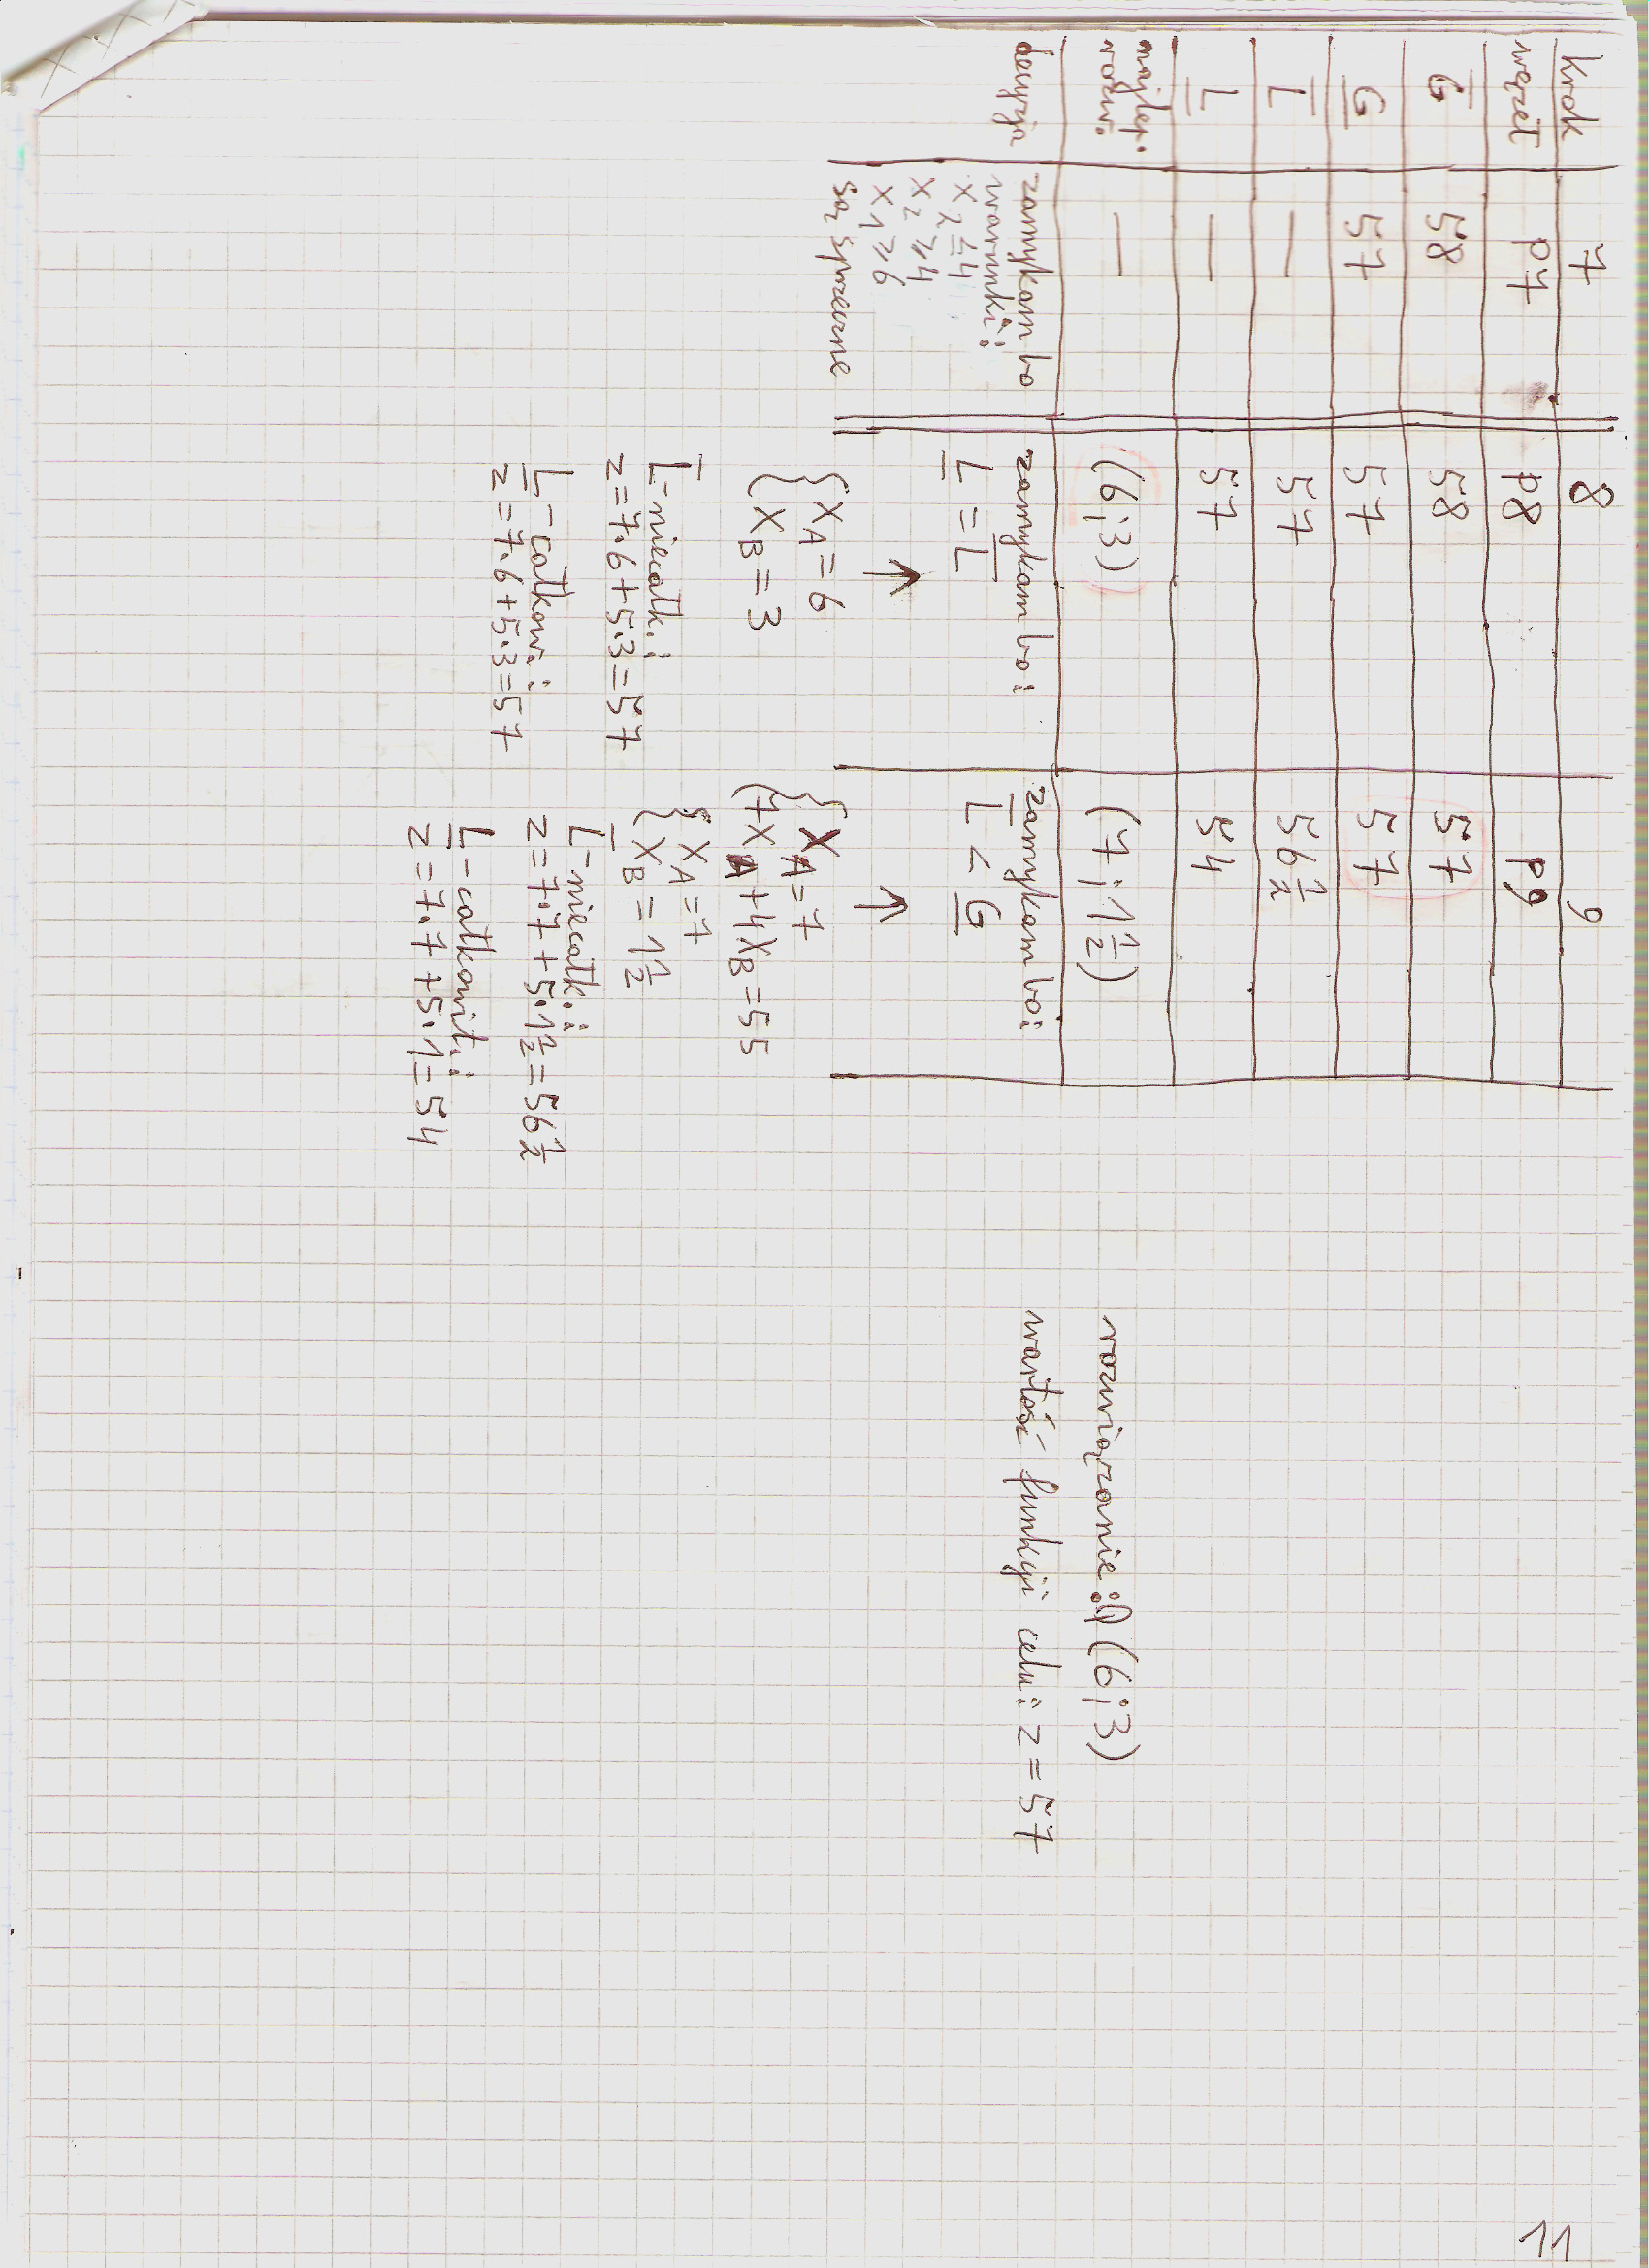 Krok 7 8 9
węzeł P7 P8 P9
G̅ 58 58 57
G̲ 57 57 57
L̅ — 57 56 1/2
L̲ — 57 54
najlep. rozw. — (6;3) (7;1 1/2)
decyzja
zamykam bo
warunki:
x₂ ≤ 4
x₂ ≥ 4
x₁ ≥ 6
są sprzeczne
zamykam bo:
L̲ = L̅
↑
{ x_A = 6
{ x_B = 3
L̅ - niecałk.:
z = 7·6+5·3=57
L̲ - całkow.:
z = 7·6+5·3=57
zamykam bo:
L̅ < G̲
↑
{ x_A = 7
{ 7x_A + 4x_B = 55
{ x_A = 7
{ x_B = 1 1/2
L̅ - niecałk.:
z = 7·7 + 5·1 1/2 = 56 1/2
L̲ - całkowit.:
z = 7·7 + 5·1 = 54
rozwiązanie: (6;3)
wartość funkcji celu: z = 57
11